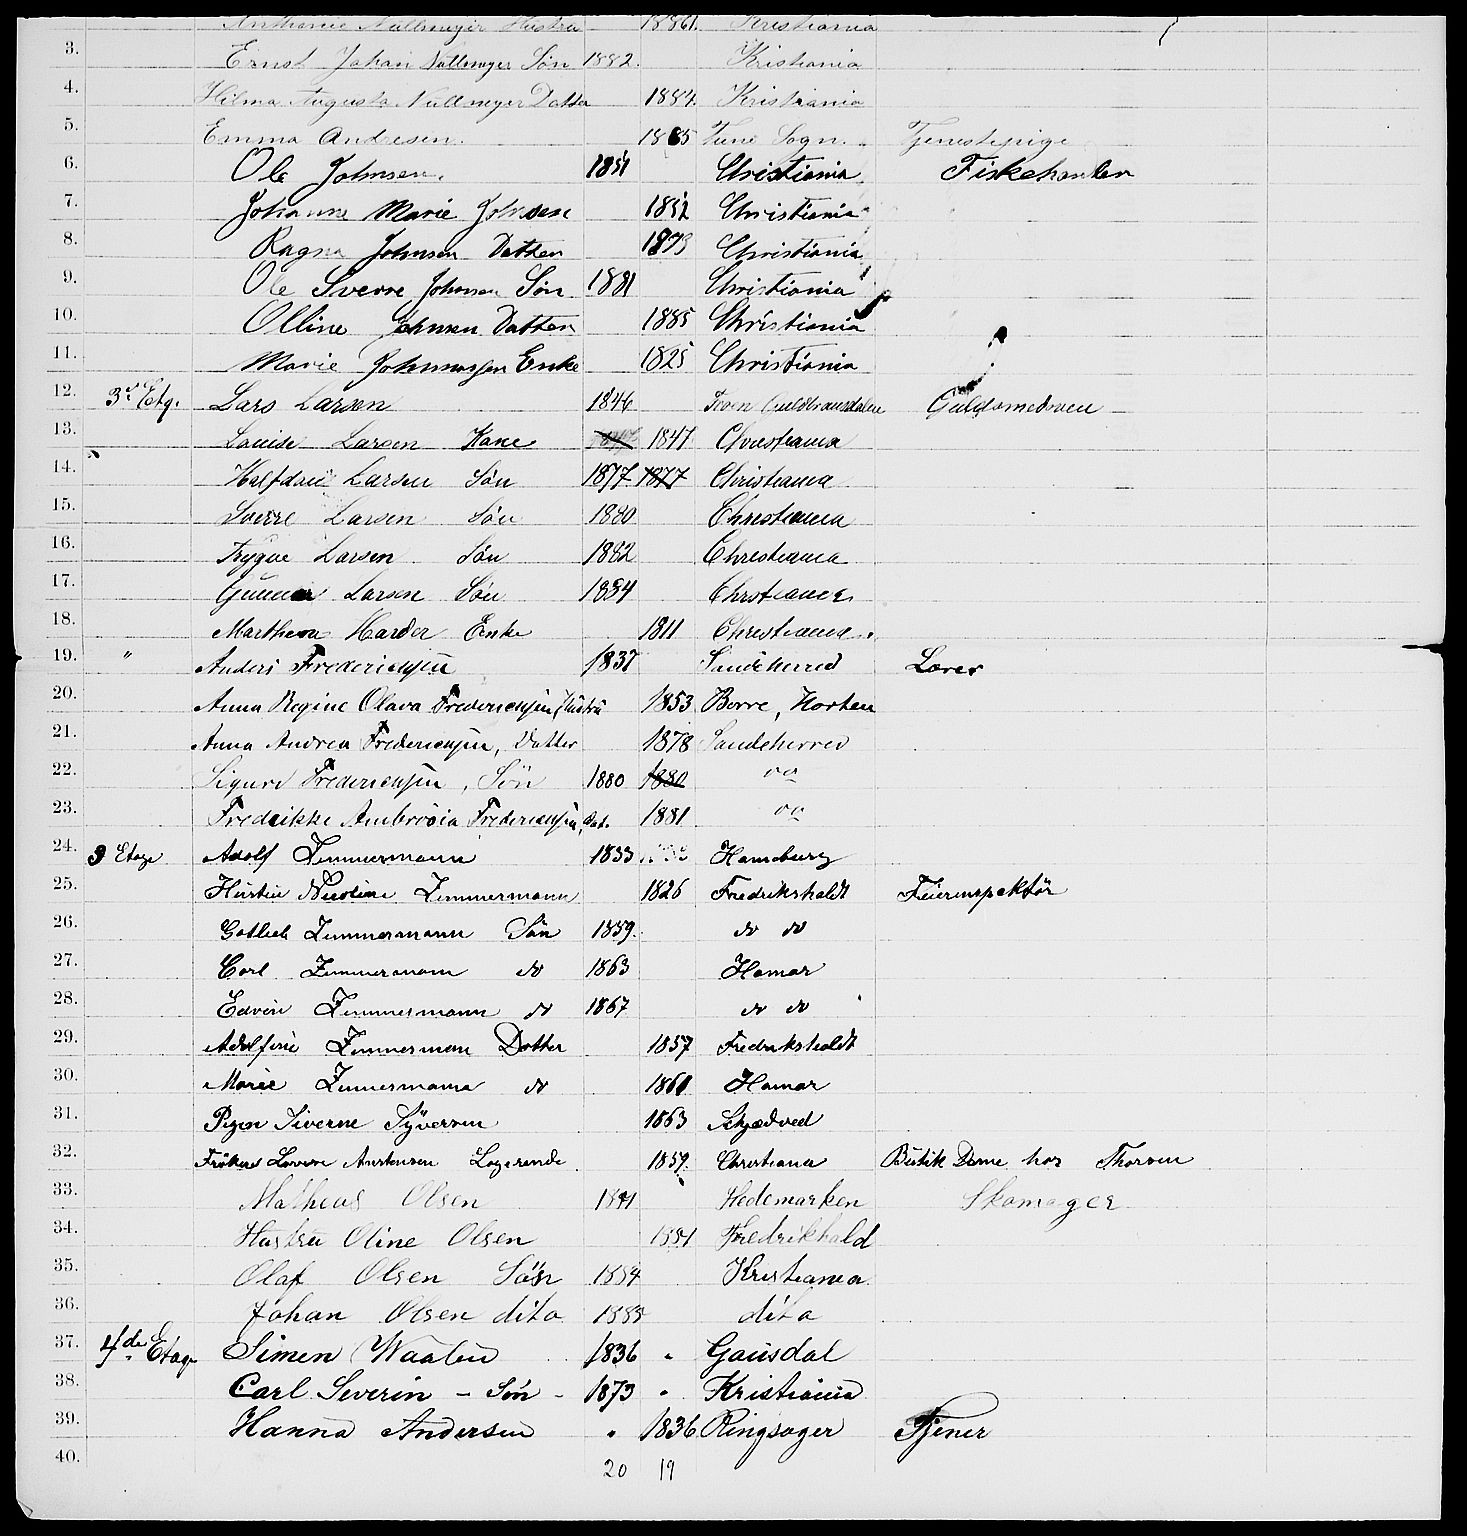 Nullmeyer Hustru 1861. Kristiania
3. Ernst Johan Nullmeyer Søn 1882. Kristiania
4. Hilma Augusta Nullmeyer Datter 1884. Kristiania
5. Emma Andresen. 1865 Tune Sogn. Tjenestepige
6. Ole Johnsen. 1851 Christiania Fiskehandler
7. Johanne Marie Johnsen 1852 Christiania
8. Ragna Johnsen Datter 1879 Christiania
9. Ole Sverre Johnsen Søn 1881 Christiania
10. Olline Johnsen Datter 1885 Christiania
11. Marie Johannessen Enke 1825 Christiania
12. 3die Etg. Lars Larsen 1846 Guldbrandsdalen Guldsmedsven
13. Louise Larsen Kone 1847 Christiania
14. Halfdan Larsen Søn 1877 1877 Christiania
15. Sverre Larsen Søn 1880 Christiania
16. Trygve Larsen Søn 1882 Christiania
17. Gunnar Larsen Søn 1884 Christiania
18. Marthea Harder Enke 1811 Christiania.
19. " Anders Fredericksen 1837 Sandeherred Lærer
20. Anna Regine Olava Fredericksen, Hustru 1853 Borre, Horten
21. Anna Andrea Fredericksen, Datter 1878 Sandeherred
22. Sigurd Fredericksen, Søn 1880 1880 do
23. Fredrikke Ambrosia Fredericksen, Dat. 1881 do
24. 3 Etage Adolf Zimmermann 1833 Hamburg
25. Hustru Nicoline Zimmermann 1826 Fredrikshaldt Feierinspektør
26. Gotlieb Zimmermann Søn 1859. do do
27. Carl Zimmermann do 1863 Hamar
28. Edvin Zimmermann do 1867 do do
29. Adolfine Zimmerman Datter 1857 Fredrikshaldt
30. Marie Zimmermann do 1860 Hamar
31. Pigen Siverne Syversen 1863 Skjædved
32. Frøken Lovise Logerende 1859. Christiania Butik Dame hos Thorsen
33. Matheus Olsen 1841 Hedemarken Skomager
34. Hustru Oline Olsen 1851 Fredrikhald
35. Olaf Olsen Søn 1884 Kristiania
36. Johan Olsen dito 1885 dito
37. 4de Etage Simen Waalen 1836 " Gausdal
38. Carl Severin - Søn - 1873 " Kristiania
39. Hanna Andersen " 1836 Ringsager Tjener
40.
20 19